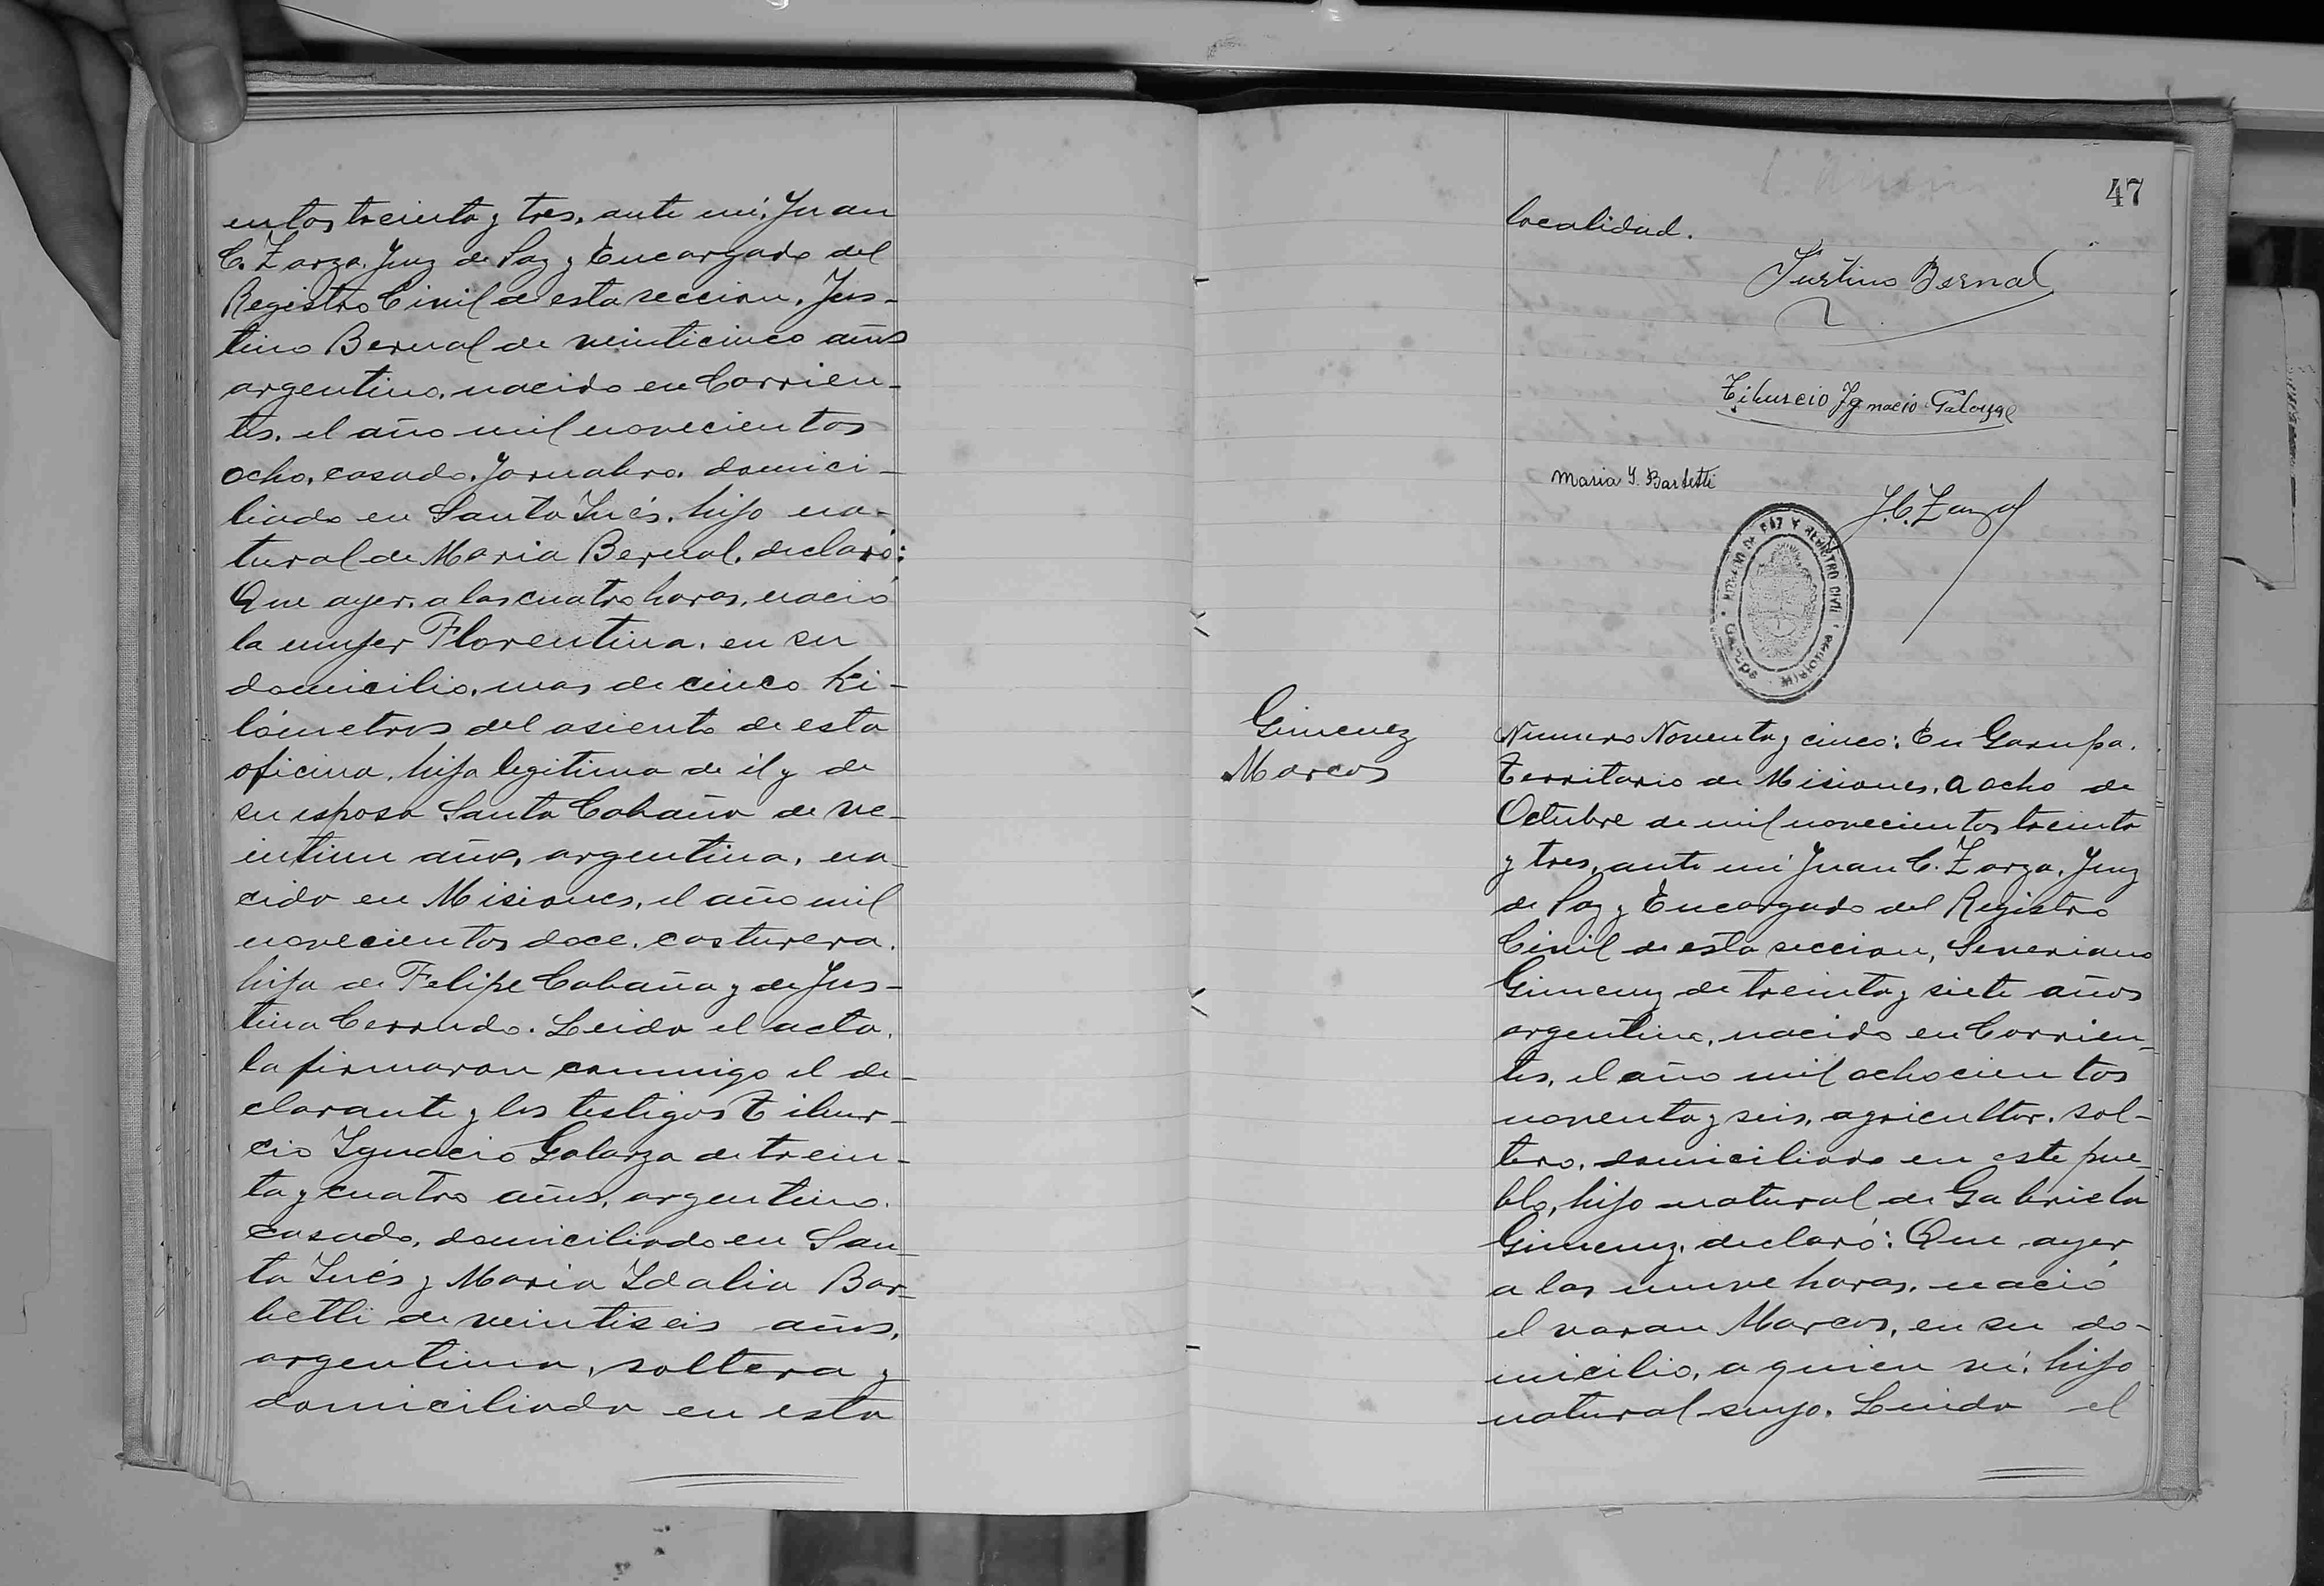 entos treinta y tres, ante mi, Juan
C. Zarza, Juez de Paz y Encargado del
Registro Civil de esta seccion, Jus-
tino Bernal de veinticinco años
argentino, nacido en Corrien-
tes, el año mil novecientos
ocho, casado, jornalero, domici-
liado en Santa Inés, hijo na-
tural de Maria Bernal, declaró:
Que ayer, a las cuatro horas, nació
la mujer Florentina, en su
domicilio, mas de cinco ki-
lómetros del asiento de esta
oficina, hija legitima de él y de
su esposa Santa Cabaña de ve-
intiun años, argentina, na-
cida en Misiones, el año mil
novecientos doce, costurera,
hija de Felipe Cabaña y de Jus-
tina Cerrudo. Leida el acta,
la firmaron conmigo el de-
clarante y los testigos Tibur-
cio Ignacio Galarza de trein-
ta y cuatro años, argentino,
casado, domiciliado en San-
ta Inés y Maria Idalia Bar-
betti de veintiseis años,
argentina, soltera y
domiciliada en esta
47
localidad.
Justino Bernal
Tiburcio Ignacio Galarza
Maria I. Barbetti
J.C. Zarza
JUZGADO DE PAZ Y REGISTRO CIVIL
GARUPÁ MISIONES
Gimenez
Marcos
Numero Noventa y cinco: En Garupa,
Territorio de Misiones, a ocho de
Octubre de mil novecientos treinta
y tres, ante mi Juan C. Zarza, Juez
de Paz y Encargado del Registro
Civil de esta seccion, Severiano
Gimenez de treinta y siete años
argentino, nacido en Corrien-
tes, el año mil ochocientos
noventa y seis, agricultor, sol-
tero, domiciliado en este pue-
blo, hijo natural de Gabriela
Gimenez, declaró: Que ayer
a las nueve horas, nació
el varon Marcos, en su do-
micilio, a quien vi, hijo
natural suyo. Leida el